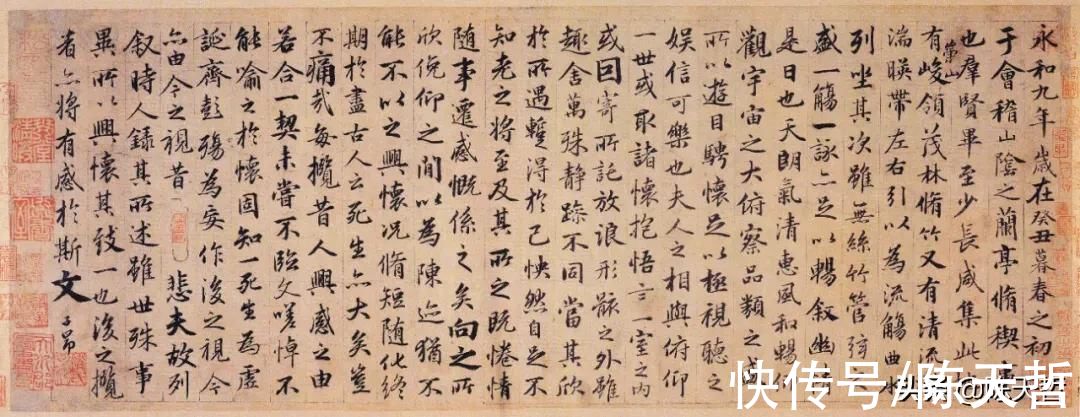 永和九年歲在癸丑暮春之初
于會稽山陰之蘭亭脩稧
也羣賢畢至少長咸集此
有崇山峻領茂林脩竹又有清流
湍暎帶左右引以為流觴曲
列坐其次雖無絲竹管弦
盛一觴一詠亦足以暢叙幽
是日也天朗氣清惠風和暢
觀宇宙之大俯察品類之盛
所以遊目騁懷足以極視聽之
娛信可樂也夫人之相與俯仰
一世或取諸懷抱悟言一室之内
或因寄所託放浪形骸之外雖
趣舍萬殊静躁不同當其欣
於所遇蹔得於己怏然自足不
知老之將至及其所之既惓情
隨事遷感慨係之矣向之所
欣俛仰之閒以為陳迹猶不
能不以之興懷况脩短隨化終
期於盡古人云死生亦大矣豈
不痛哉每攬昔人興感之由
若合一契未嘗不臨文嗟悼不
能喻之於懷固知一死生為虛
誕齊彭殤為妄作後之視今
亦由今之視昔悲夫故列
叙時人錄其所述雖世殊事
異所以興懷其致一也後之攬
者亦將有感於斯文 子昂
快传号/陈天哲